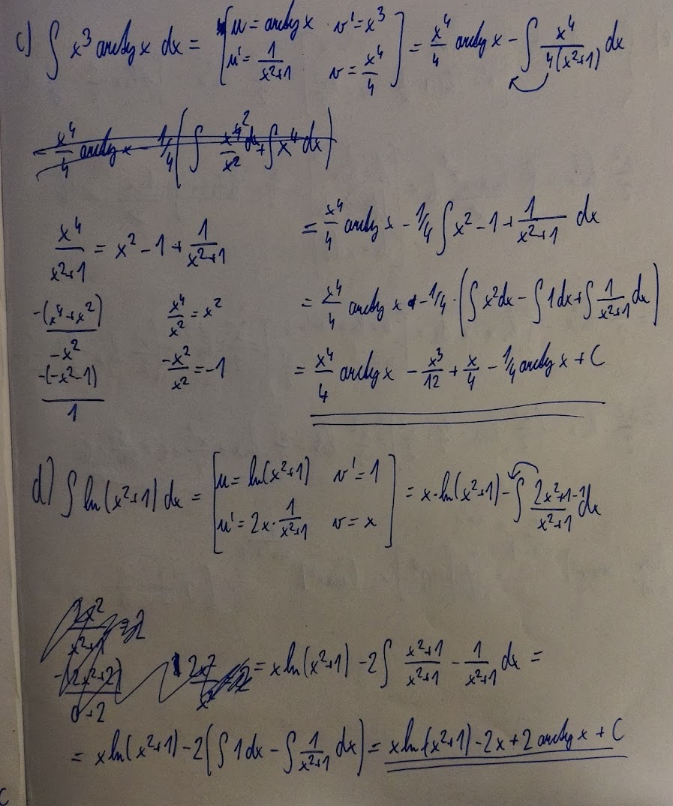 c) ∫ x³ arctg x dx = [u = arctg x v' = x³ u' = 1/(x²+1) v = x⁴/4] = x⁴/4 arctg x - ∫ x⁴/(4(x²+1)) dx
x⁴/(x²+1) = x² - 1 + 1/(x²+1)
= x⁴/4 arctg x - 1/4 ∫ x² - 1 + 1/(x²+1) dx
-(x⁴+x²) x⁴/x² = x²
-x² -x²/x² = -1
= x⁴/4 arctg x - 1/4 · (∫ x² dx - ∫ 1 dx + ∫ 1/(x²+1) dx)
-(-x²-1)
1
= x⁴/4 arctg x - x³/12 + x/4 - 1/4 arctg x + C
d) ∫ ln(x²+1) dx = [u = ln(x²+1) v' = 1 u' = 2x · 1/(x²+1) v = x] = x · ln(x²+1) - ∫ dx
= x ln(x²+1) - 2 ∫ (x²+1)/(x²+1) - 1/(x²+1) dx =
= x ln(x²+1) - 2(∫ 1 dx - ∫ 1/(x²+1) dx) = x ln(x²+1) - 2x + 2 arctg x + C